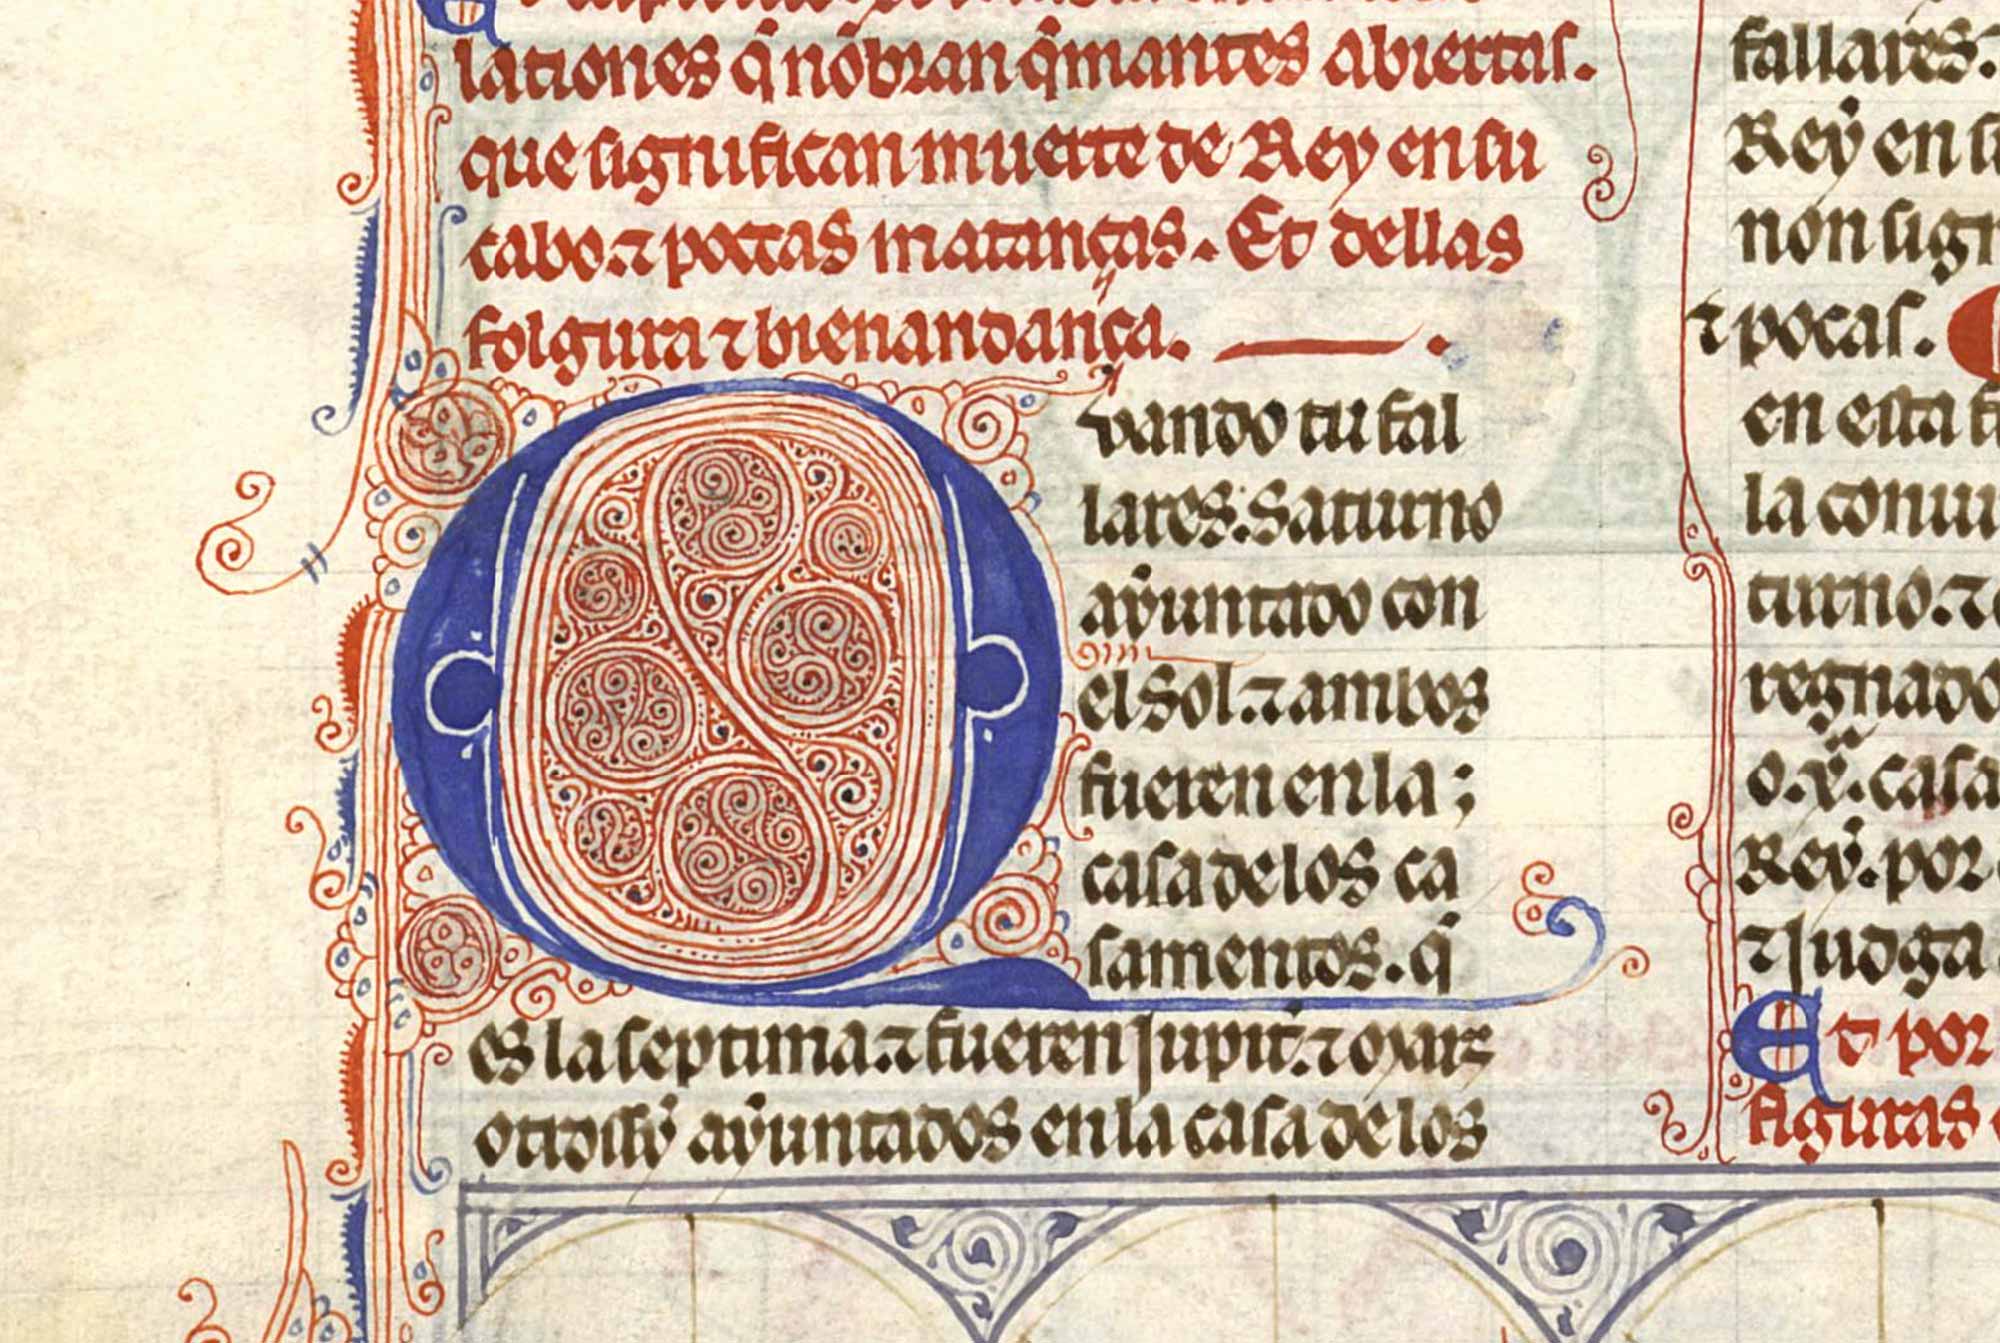 lationes q̃ nõbran q̃mantes abiertas.
que significan muerte de Rey en su
cabo. ⁊ poccas matanças. Et dellas
folgura ⁊ bienandança.
Quando tu fal
lares. Saturno
aẏuntado con
el Sol. ⁊ ambos
fueren en la ;
casa de los ca
samentos. q̃
es la septima. ⁊ fueren Jupit̃. ⁊
otrossẏ aẏuntados en la casa de los
fallares.
Reẏ en
non
⁊ pocas.
en esta
la
turno. ⁊
regnado
casa
Reẏ. por
⁊ Judga
Et por
figuras